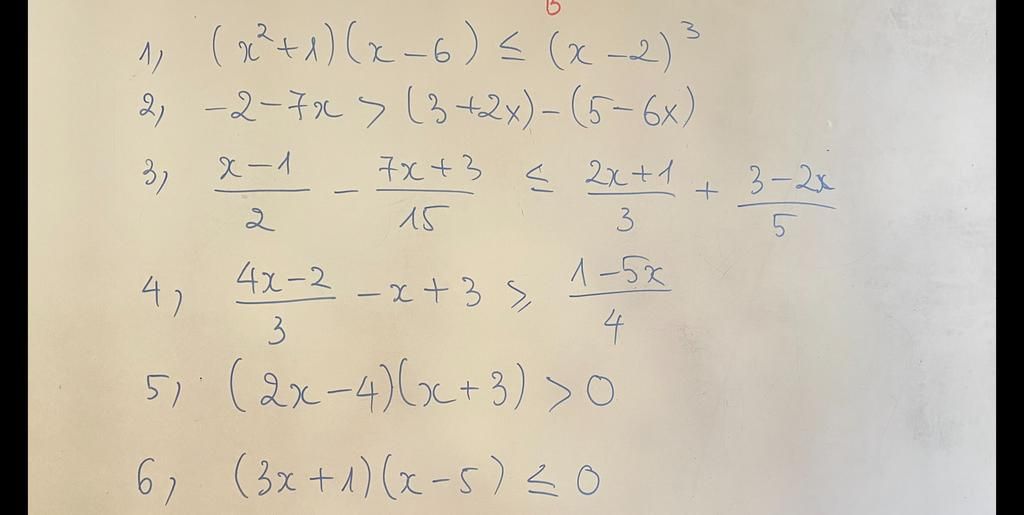 B
1, (x²+1)(x-6) ≤ (x-2)³
2, -2-7x > (3+2x)-(5-6x)
3, (x-1)/2 - (7x+3)/15 ≤ (2x+1)/3 + (3-2x)/5
4, (4x-2)/3 -x+3 ≥ (1-5x)/4
5, (2x-4)(x+3) > 0
6, (3x+1)(x-5) ≤ 0